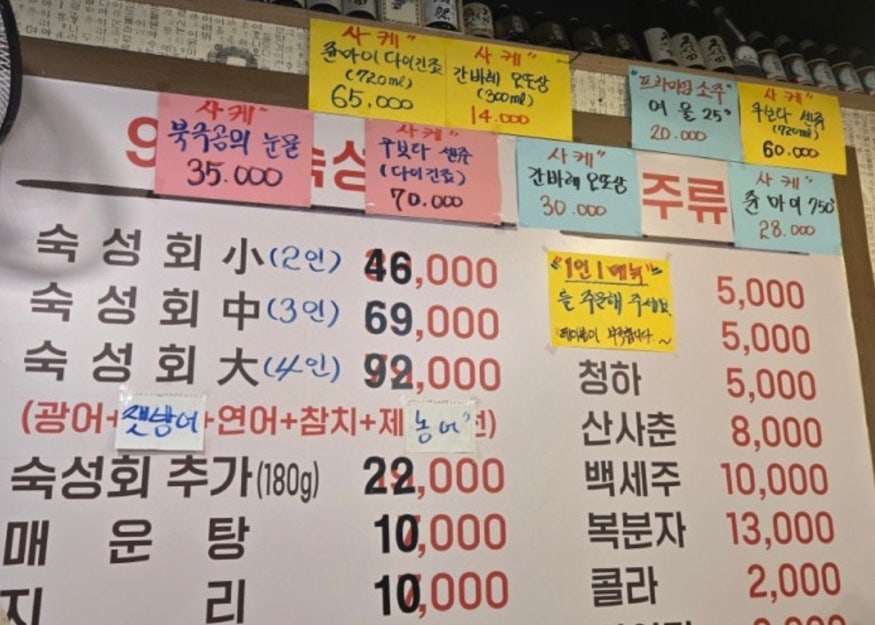 사케"
쥰마이 다이긴죠
(720㎖)
65.000
사케"
간바레 오또상
(300㎖)
14.000
"프리미엄 소주"
여울 25°
20.000
사케"
쿠보다 센쥬
(720㎖)
60.000
사케"
북극곰의 눈물
35.000
사케"
쿠보다 센쥬
(다이긴죠)
70.000
사케"
간바레 오또상
30.000
사케"
쥰마이 750"
28.000
9
숙성
주류
숙성회 小(2인) 46,000
숙성회 中(3인) 69,000
숙성회 大(4인) 92,000
(광어+잿방어+연어+참치+제 농어" 선)
숙성회 추가(180g) 22,000
매운탕 10,000
지리 10,000
"1인 1메뉴"
를 주문해 주세요.
5,000
5,000
청하 5,000
산사춘 8,000
백세주 10,000
복분자 13,000
콜라 2,000